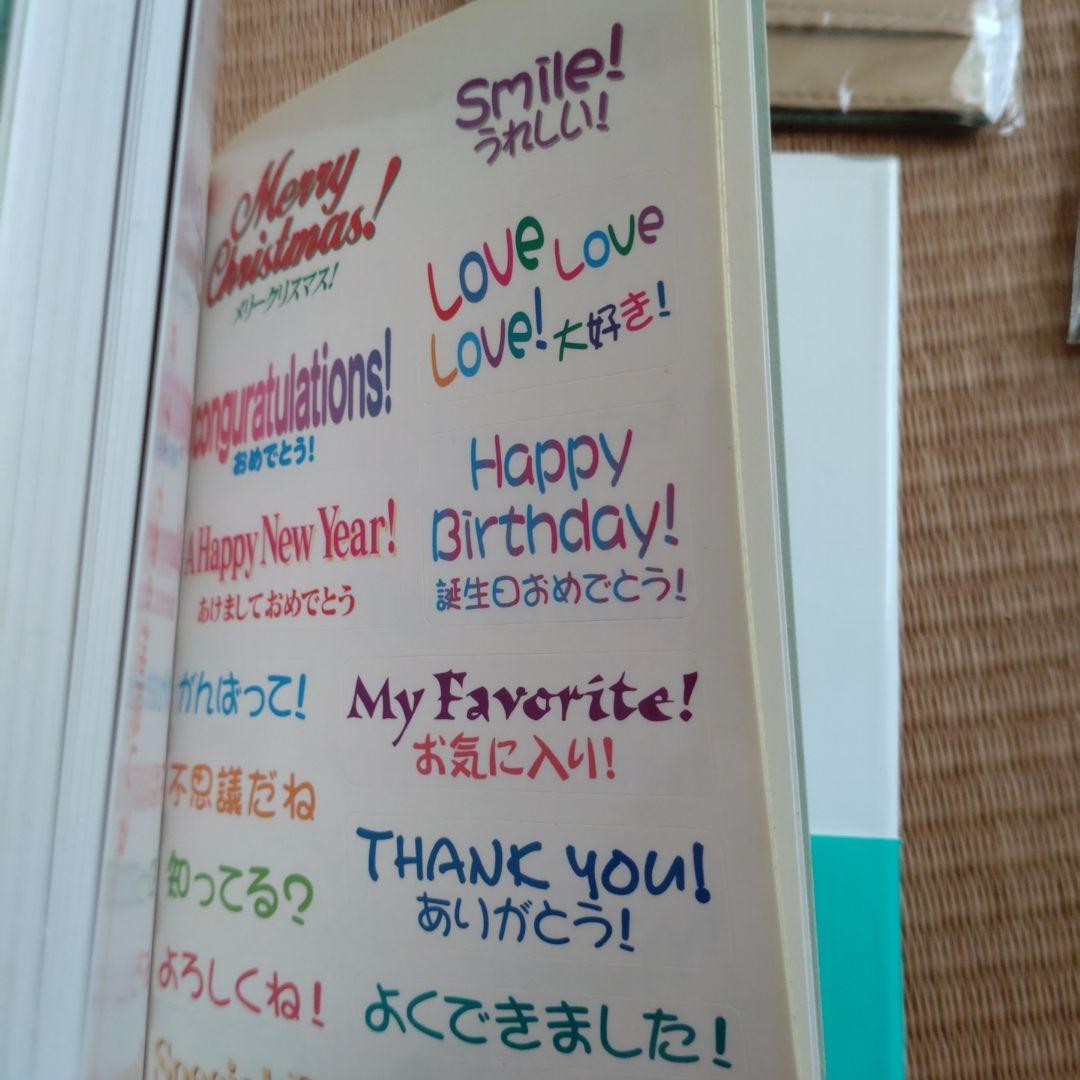 Smile!
うれしい!
Merry
Christmas!
メリークリスマス!
Love Love
Love! 大好き!
Conguratulations!
おめでとう!
Happy
Birthday!
誕生日おめでとう!
A Happy New Year!
あけましておめでとう
がんばって!
My Favorite!
お気に入り!
不思議だね
THANK YOU!
ありがとう!
知ってる?
よろしくね!
よくできました!
Special